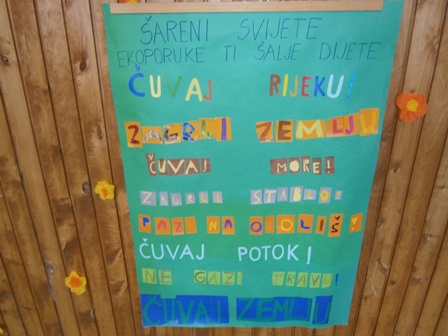 ŠARENI SVIJETE
EKOPORUKE TI ŠALJE DIJETE
ČUVAJ RIJEKU!
ZAGRLI ZEMLJU
ČUVAJ MORE!
ZAGRLI STABLO!
PAZI NA OKOLIŠ!
ČUVAJ POTOK!
NE GAZI TRAVU!
ČUVAJ ZEMLJU